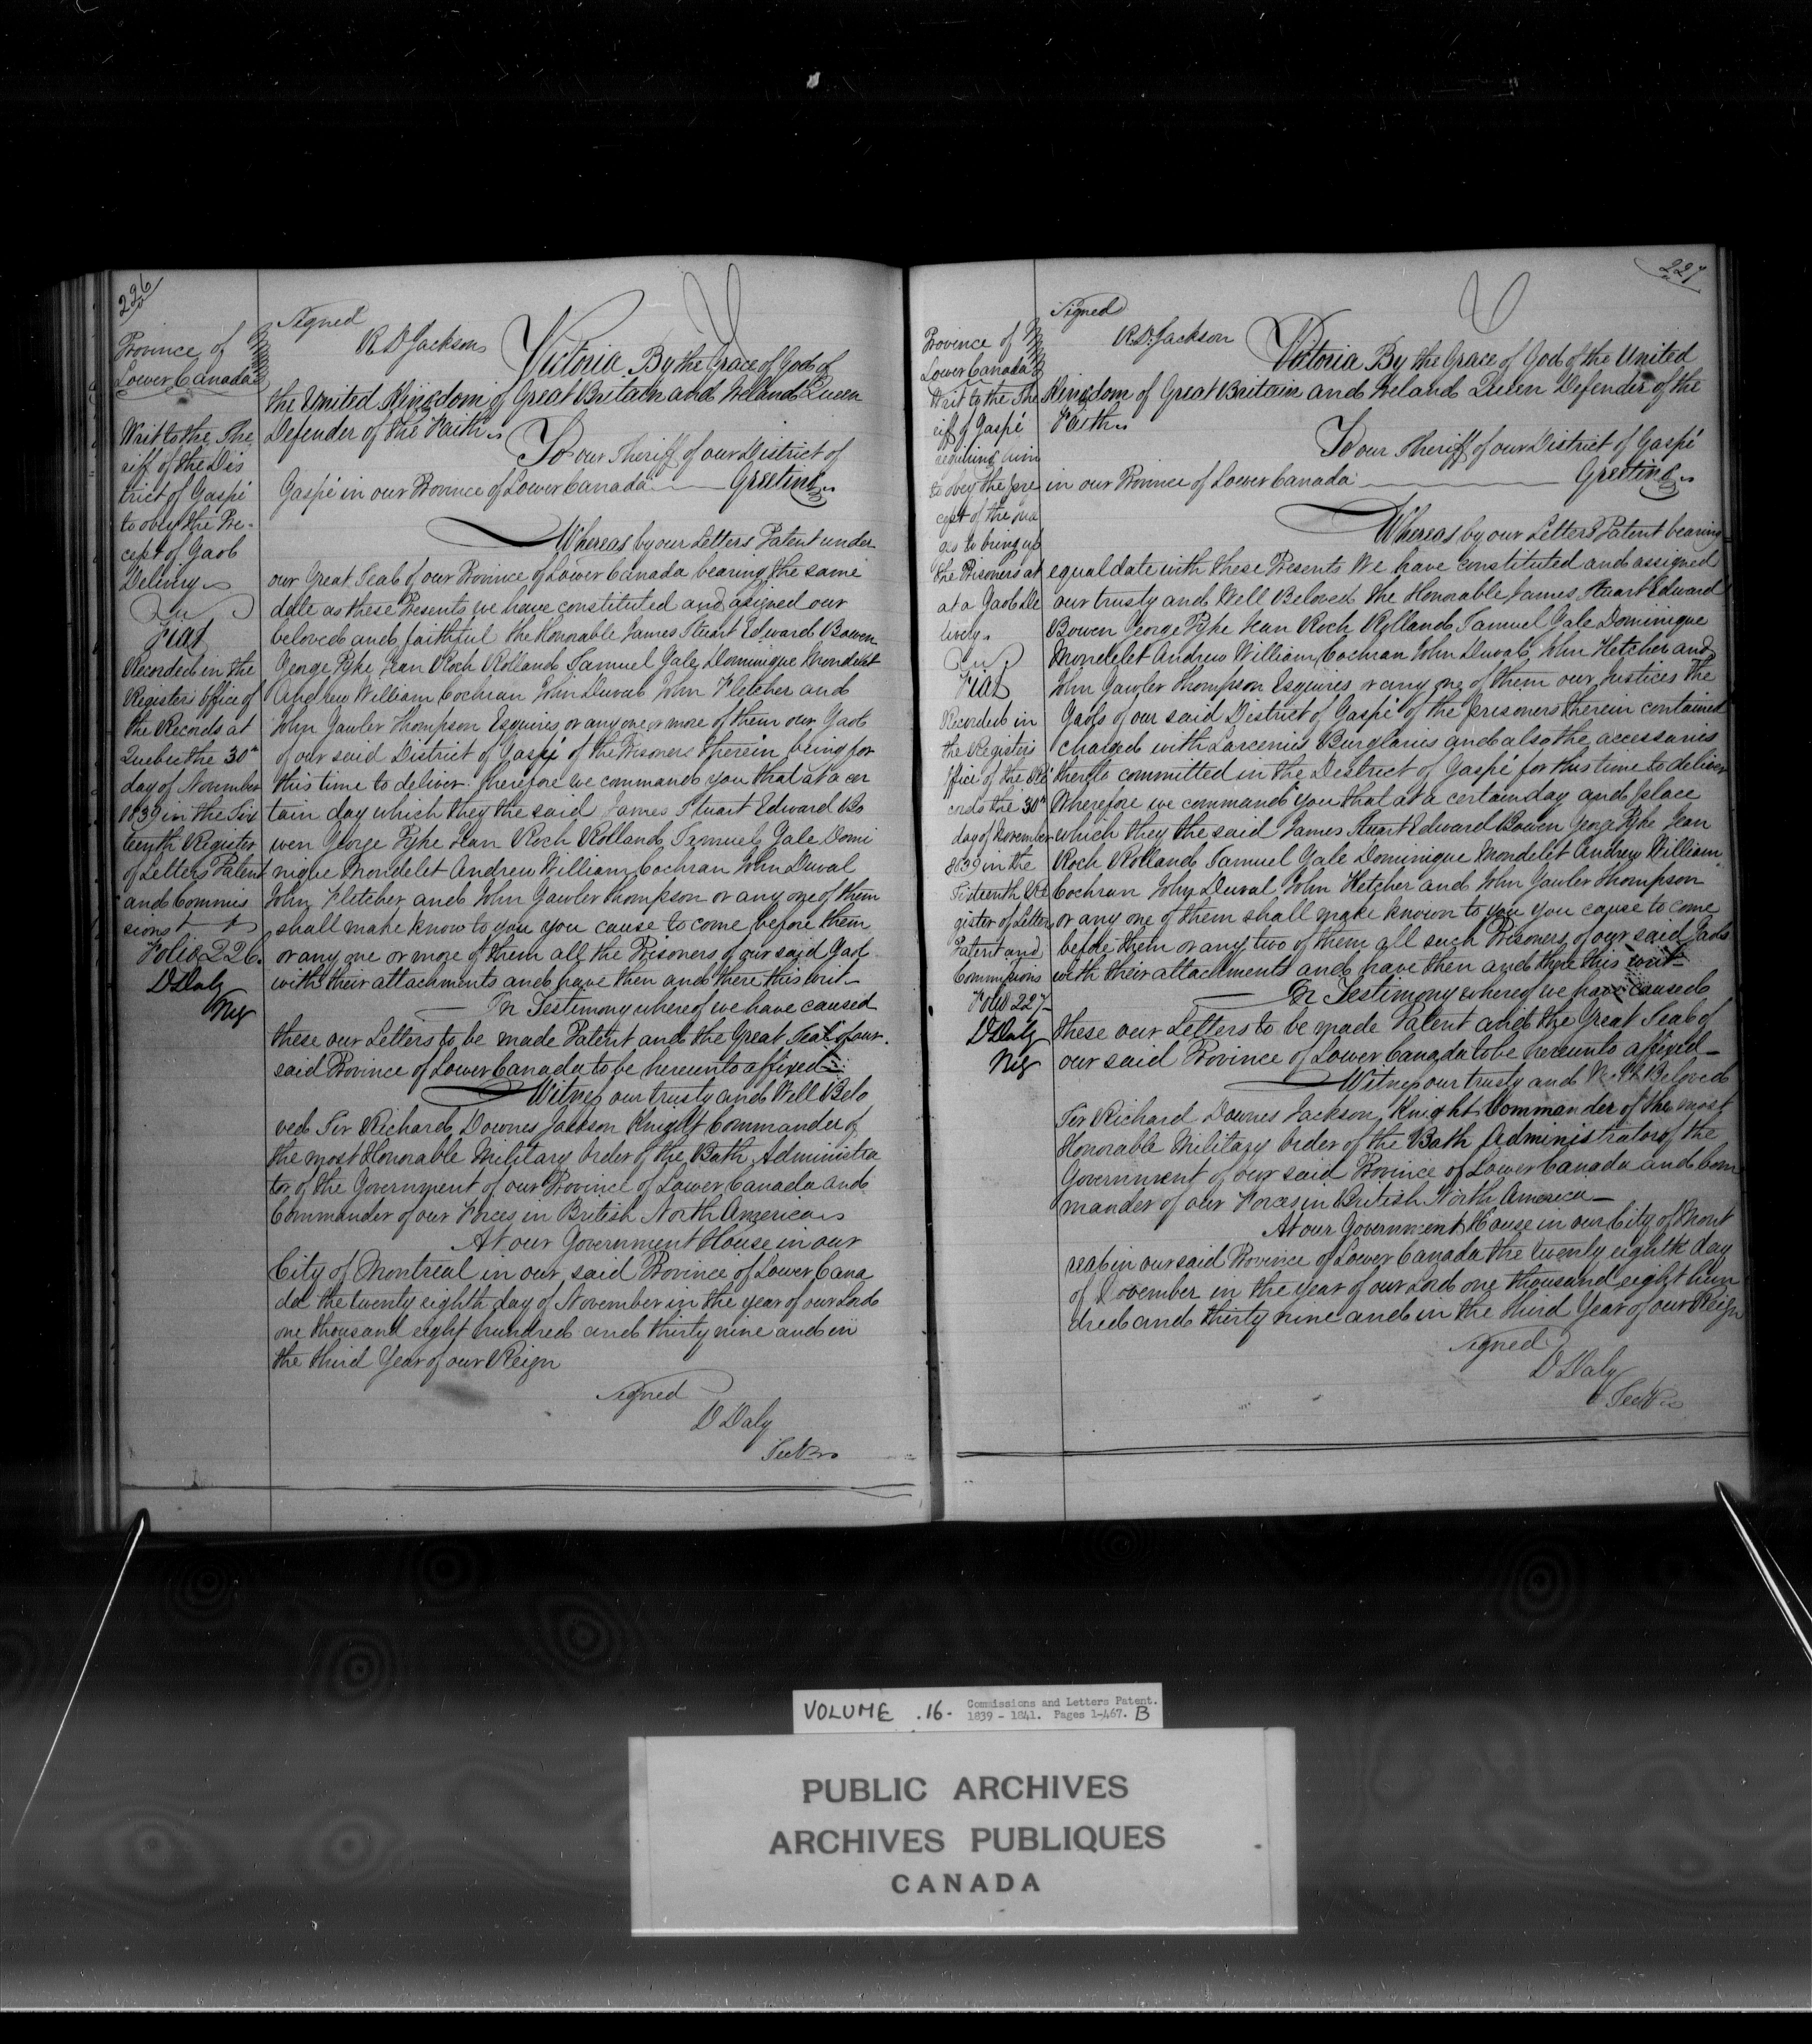 226
Province of
Lower Canada
Writ to the She
riff of the Dis
trict of Gaspé
to obey the Pre-
cept of Gaol
Delivery
Fiat
Recorded in the
Registers Office of
the Records at
Quebec the 30th
day of November
1839 in the Six
teenth Register
of Letters Patent
and Commis
sions
Folio 226.
D Daly
Reg
Signed
R D Jackson
Victoria By the Grace of God of
the United Kingdom of Great Britain and Ireland Queen
Defender of the Faith
To our Sheriff of our District of
Gaspé in our Province of Lower Canada Greeting
Whereas by our Letters Patent under
our Great Seal of our Province of Lower Canada bearing the same
date as these Presents we have constituted and asigned our
beloved and faithful the Honorable James Stuart Edward Bowen
George Pyke Jean Roch Rolland Samuel Gale Dominique Mondelet
Andrew William Cochran John Duval John Fletcher and
John Gawler Thompson Esquires or any one or more of them our Gaol
of our said District of Gaspé of the Prisoners therein being for
this time to deliver Therefore we command you that at a cer
tain day which they the said James Stuart Edward Bo
wen George Pyke Jean Roch Rolland Samuel Gale Domi
nique Mondelet Andrew William Cochran John Duval
John Fletcher and John Gawler Thompson or any one of them
shall make know to you you cause to come before them
or any one or more of them all the Prisoners of our said Gaol
with their attachments and have then and there this writ
In Testimony whereof we have caused
these our Letters to be made Patent and the Great Seal of our
said Province of Lower Canada to be hereunto affixed
Witness our trusty and Well Belo
ved Sir Richard Downes Jackson Knight Commander of
the most Honorable Military Order of the Bath Administra
tor of the Government of our Province of Lower Canada and
Commander of our Forces in British North America
At our Government House in our
City of Montreal in our said Province of Lower Cana
da the twenty eighth day of November in the year of our Lord
one thousand eight hundred and thirty nine and in
the third Year of our Reign
Signed
D Daly
227
Province of
Lower Canada
Writ to the She
riff of Gaspé
requiring him
to obey the pre
cept of the
to bring up
the Prisoners at
at a Gaol De
livery
Fiat
Recorded in
the Registers
Office of the Re
cords the 30th
day of November
1839 in the
Sixteenth Re
gister of Letters
Patent and
Commissions
Folio 227
D Daly
Reg
Signed
R.D. Jackson
Victoria By the Grace of God of the United
Kingdom of Great Britain and Ireland Queen Defender of the
Faith
To our Sheriff of our District of Gaspé
in our Province of Lower Canada Greeting
Whereas by our Letters Patent bearing
equal date with these Presents We have constituted and assigned
our trusty and Well Beloved the Honorable James Stuart Edward
Bowen George Pyke Jean Roch Rolland Samuel Gale Dominique
Mondelet Andrew William Cochran John Duval John Fletcher and
John Gawler Thompson Esquires or any one of them our Justices the
Gaols of our said District of Gaspé of the prisoners therein contained
charged with Larcenies Burglaries and also the accessaries
thereto committed in the District of Gaspé for this time to deliver
Wherefore we command you that at a certain day and place
which they the said James Stuart Edward Bowen George Pyke Jean
Roch Rolland Samuel Gale Dominique Mondelet Andrew William
Cochran John Duval John Fletcher and John Gawler Thompson
or any one of them shall make known to you you cause to come
before them or any two of them all such Prisoners of our said Gaols
with their attachments and have then and there this writ
In Testimony whereof we have caused
these our Letters to be made Patent and the Great Seal of
our said Province of Lower Canada to be hereunto affixed
Witness our trusty and Well Beloved
Sir Richard Downes Jackson Knight Commander of the most
Honorable Military Order of the Bath Administrator of the
Government of our said Province of Lower Canada and Com
mander of our Forces in British North America
At our Government House in our City of Mont
real in our said Province of Lower Canada the twenty eighth day
of November in the year of our Lord one thousand eight hun
dred and thirty nine and in the third Year of our Reign
Signed
D Daly
VOLUME .16. Commissions and Letters Patent.
1839 - 1841. Pages 1-467. B
PUBLIC ARCHIVES
ARCHIVES PUBLIQUES
CANADA